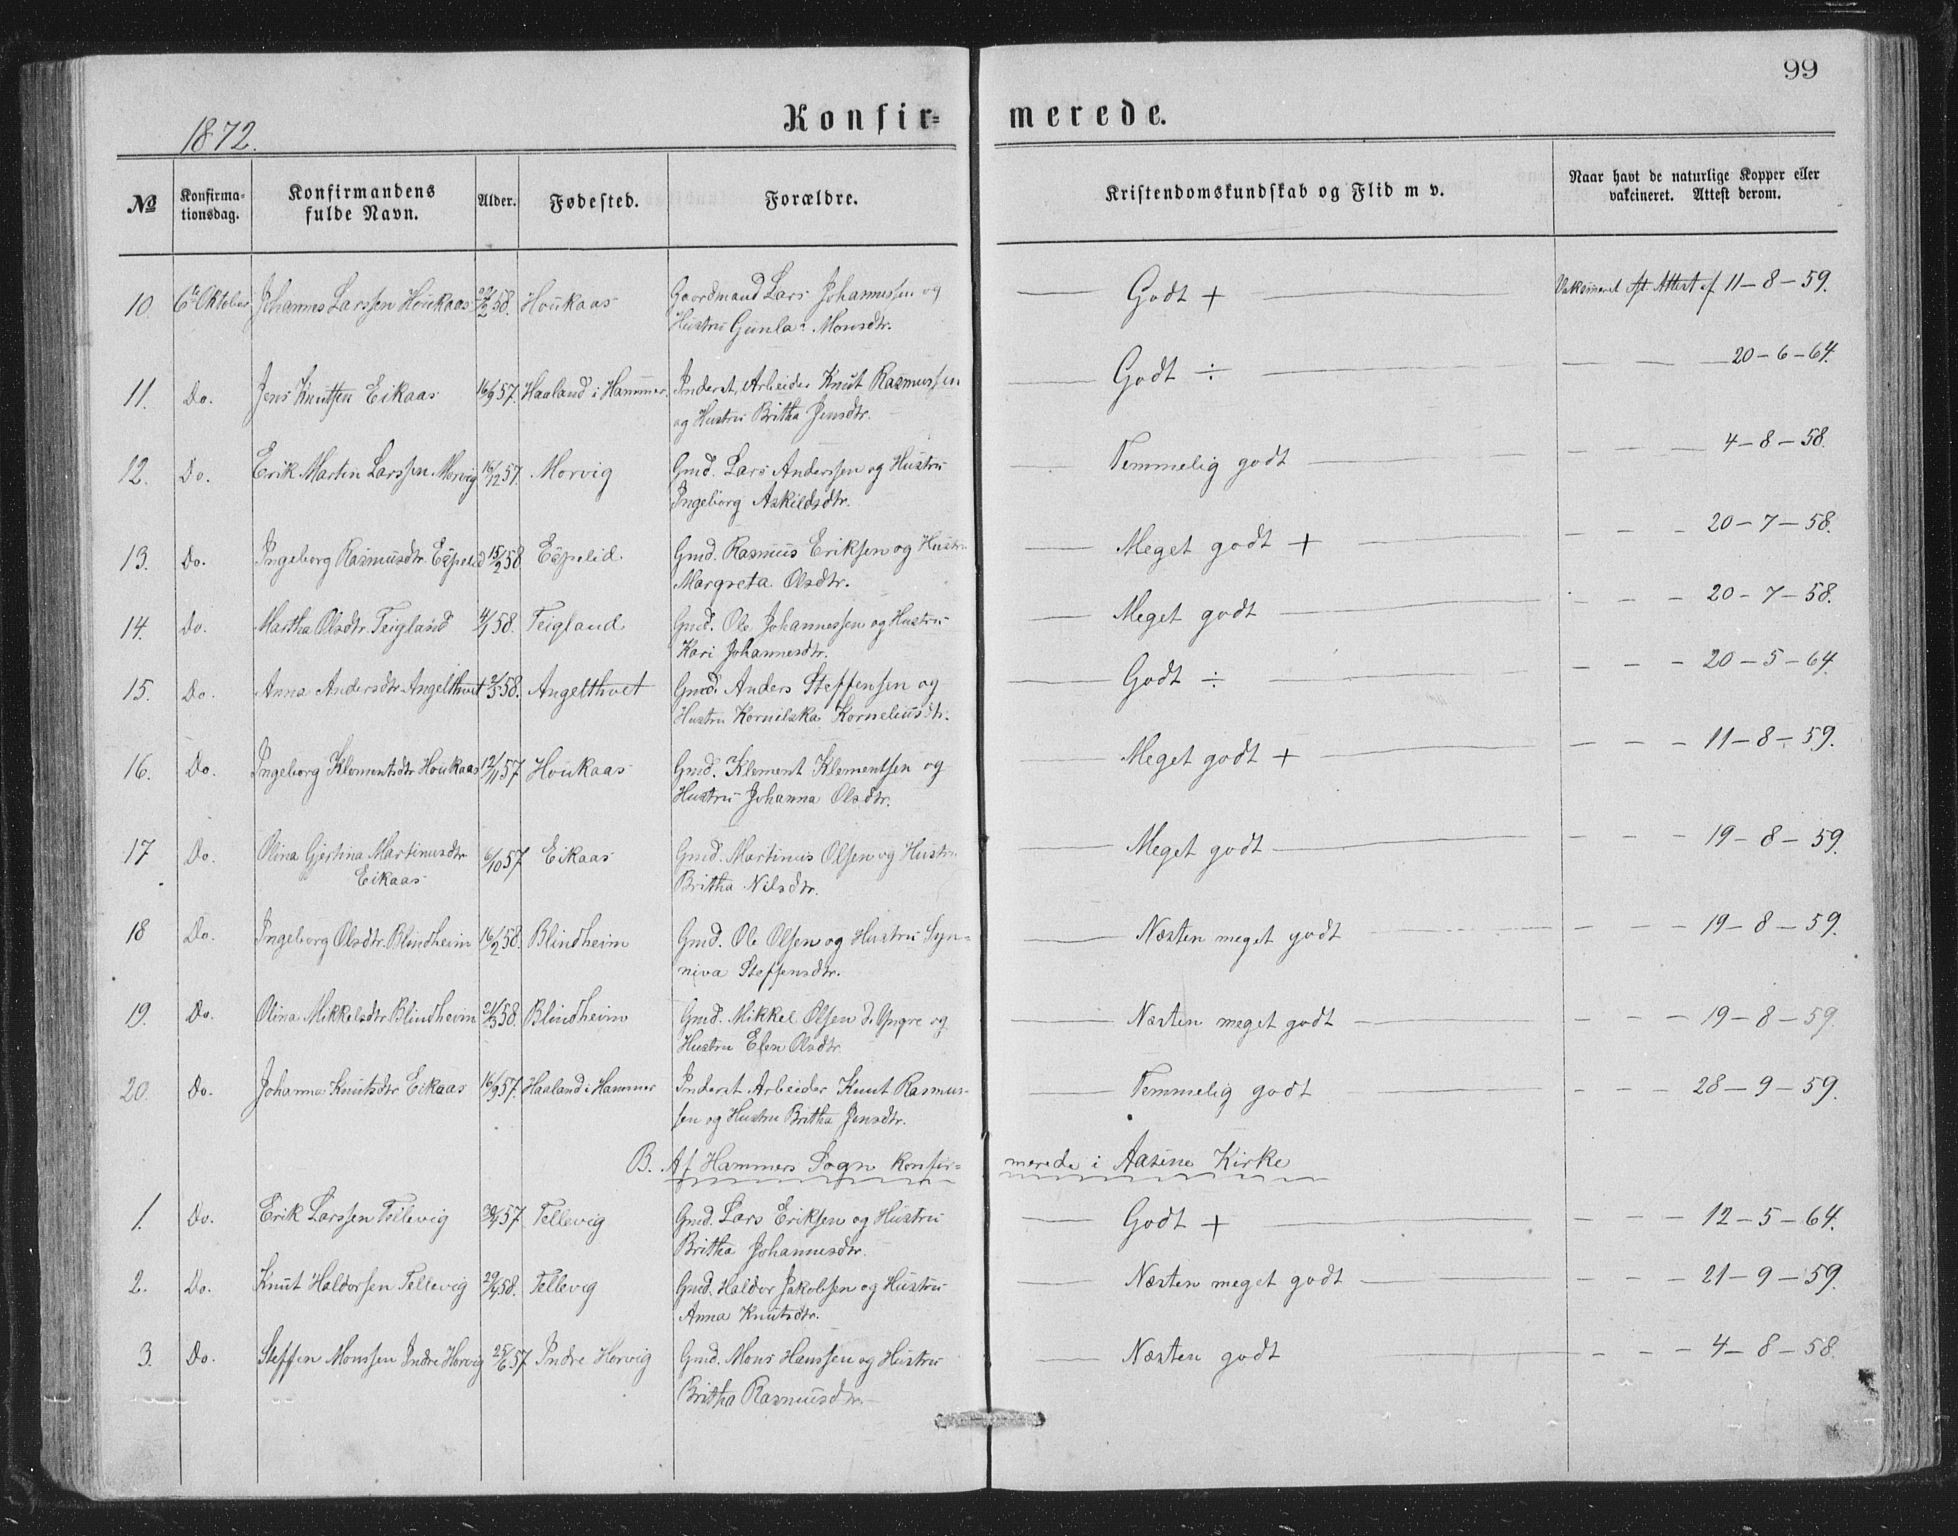 99
1872.
Konfir= merede.
№ Konfirma=tionsdag. Konfirmandens fulde Navn. Alder. Fødested. Forældre. Kristendomskundskab og Flid m v. Naar havt de naturlige Kopper eller vakcineret. Attest derom.
10. 6te Oktober Johannes Larssen Houkaas 58. Houkaas Gaardmand Lars Johannessen og — Godt + — Vaksineret Attest af 11-8-59.
Hustru Gunla Monsdtr.
11. Do. Jens Knutsen Eikaas 16/9 57. Haaland i Hammer. Inderst, Arbeider Knut Rasmussen — Godt ÷ — 20-6-64.
og Hustru Britha Jensdtr.
12. Do. Erik Martin Larssen Morvig 16/12 57. Morvig Gmd. Lars Anderssen og Hustru — Temmelig godt — 4-8-58.
Ingeborg Askildsdtr.
13. Do. Ingeborg Rasmusdtr. Espelid 15/2 58 Espelid Gmd. Rasmus Eriksen og Hustru — Meget godt + — 20-7-58.
Margreta Olsdtr.
14. Do. Martha Olsdtr. Teigland 58. Teigland Gmd. Ole Johannessen og Hustru — Meget godt — 20-7-58.
Kari Johannesdtr.
15. Do. Anna Andersdtr. Angelthvet 58. Angelthvet Gmd. Anders Steffensen og — Godt ÷ — 20-5-64.
Hustru Kornilska Korneliusdtr.
16. Do. Ingeborg Klementsdtr Houkaas 12/11 57 Houkaas Gmd. Klement Klementsen og — Meget godt + — 11-8-59.
Hustru Johanna Olsdtr.
17 Do. Olina Gjertina Martinusdtr 6/10 57 Eikaas Gmd. Martinus Olsen og Hustru — Meget godt — 19-8-59.
Eikaas Britha Nilsdtr.
18 Do. Ingeborg Olsdtr. Blindheim 16/2 58. Blindheim Gmd. Ole Olsen og Hustru Syn= — Næsten meget godt — 19-8-59.
niva Steffensdtr.
19. Do. Olina Mikkelsdtr. Blindheim 21/3 58. Blindheim Gmd. Mikkel Olsen d. Yngre og — Næsten meget godt — 19-8-59
Hustru Elen Olsdtr.
20. Do. Johanna Knutsdtr Eikaas 16/9 57. Haaland i Hammer Inderst Arbeider Knut Rasmus- — Temmelig godt — 28-9-59.
sen og Hustru Britha Jensdtr.
B. Af Hammers Sogn konfir= merede i Aasene Kirke
1. Do. Erik Larssen Tellevig 57 Tellevig Gmd. Lars Eriksen og Hustru — Godt + — 12-5-64.
Britha Johannesdtr.
2. Do. Knut Haldorsen Tellevig 58. Tellevig Gmd. Haldor Jakobsen og Hustru — Næsten meget godt — 21-9-59.
Anna Knutsdtr.
3. Do. Steffen Monssen Indre Horvig 25/6 57 Indre Horvig Gmd. Mons Hanssen og Hustru — Næsten godt — 4-8-58.
Britha Rasmusdtr.